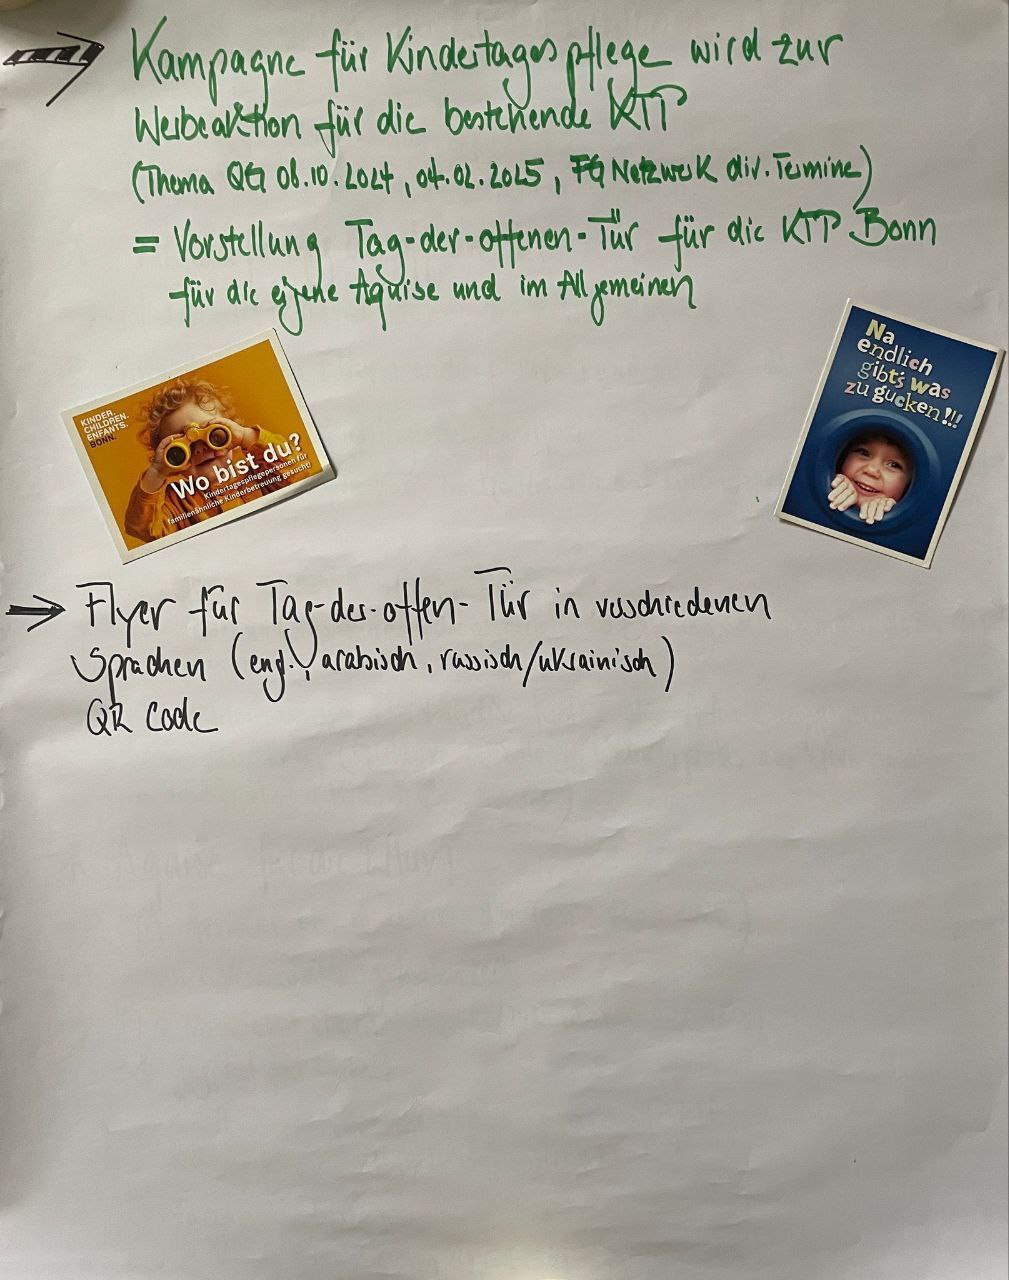 Kampagne für Kindertagespflege wird zur
Werbeaktion für die bestehende KTP
(Thema QG 08.10.2024, 04.02.2025, FG Netzwerk div. Termine)
= Vorstellung Tag-der-offenen-Tür für die KTP Bonn
für die eigene Aquise und im Allgemeinen
KINDER.
CHILDREN.
ENFANTS.
BONN.
Wo bist du?
Kindertagespflegepersonen für
familienähnliche Kinderbetreuung gesucht!
Na
endlich
gibt's was
zu gucken!!!
→ Flyer für Tag-der-offen-Tür in verschiedenen
Sprachen (engl., arabisch, russisch/ukrainisch)
QR Code